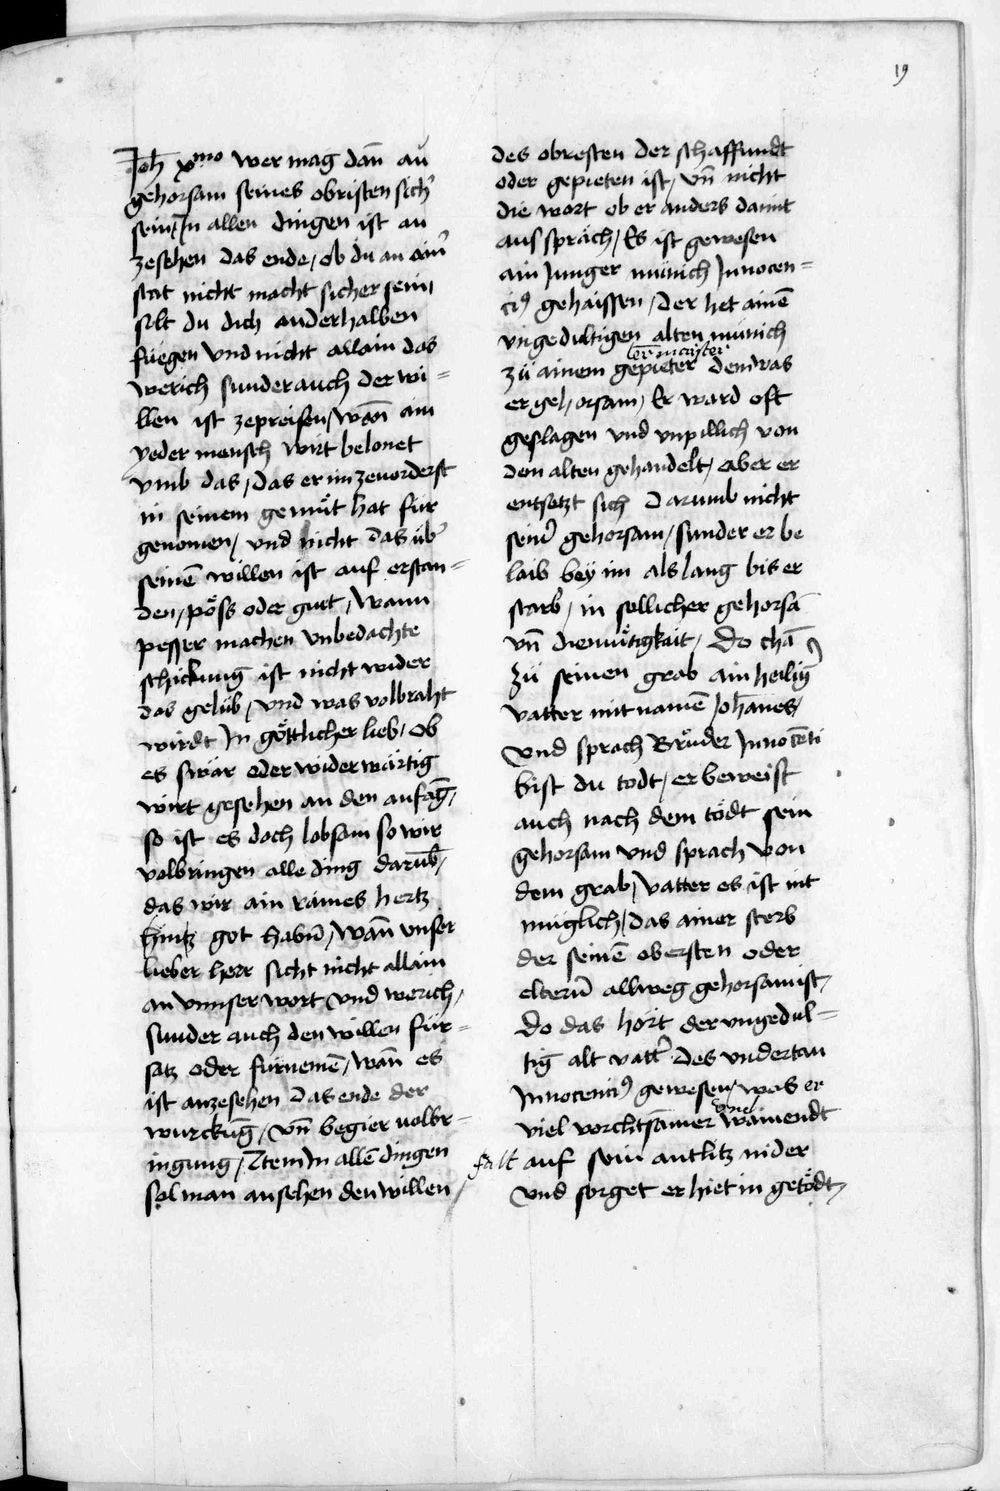 19
Joh̄ xmo wer mag dan̄ an
gehorsam seines obristen sich'
sein, In allen dingen ist an
zesehen das ende, ob du an ain'
stat nicht macht sicher sein,
silt du dich anderhalben
fuegen Vnd nicht allain das
werich sunder auch der wi=
llen ist zepreisen, wan̄ ain
yeder mensch wirt belonet
vmb das, das er im zeuorderst
in seinem gemüt hat für
genomen, vnd nicht das üb'
seinē willen ist auf erstan=
den, pöss oder guet, Wann
pesser machen vnbedachte
schickung ist nicht wider
das gelüb, vnd was volbraht
wirdt In göttlicher lieb, ob
es swär oder widerwärtig
wirt gesehen an den anfāg,
so ist es doch lobsam so wir
volbringen alle ding darūb,
das wir ain raines hertz
hintz got habn̄, wan̄ vnser
lieber herr sicht nicht allain
an vnnser wort vnd werich,
sunder auch den willen für=
satz oder fürnemē, wan̄ es
ist anzesehen das ende der
wurckūg, vn̄ begier uolbr=
ingung, Item In allē dingen
sol man ansehen den willen,
des obresten der schaffundt
oder gepieten ist, vn̄ nicht
die wort ob er anders damit
aus spräch, Es ist gewesen
ain Junger münich Innocen=
ci9 gehaissen, der het ainē
vngedultigen alten münich
ler maister
zü ainem gepieter dem was
er gehorsam, Er ward oft
geslagen vnd vnpillich von
dem alten gehandelt, aber er
entsetzt sich darumb nicht
sein' gehorsam, sunder er be
laib bey im als lang bis er
starb, in sellicher gehorsā
vn̄ diemütigkait, Do chā
zü seinen grab ain heilig'
vatter mit namē Joh̄anes,
vnd sprach Brüder Innocēti
bist du todt, er beweist
auch nach dem tödt sein
gehorsam vnd sprach von
dem grab, vatter es ist nit
müglich, das ainer sterb
der seinē obersten oder
eltern̄ allweg gehorsam ist,
Do das hört der vngedul=
tig alt vatt' des vndertan
Innocenci9 gewesen, was er
viel vorchtsamer wainendt
falt auf sein antlitz nider
vnd sorget er hiet in getödt,